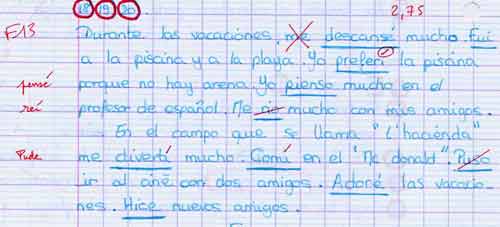 18 19 20 2,75
F13 Durante las vacaciónes, me descansé mucho. Fui
a la piscina y a la playa. Yo preferí la piscina
pensé porque no hay arena. Yo pienso mucho en el
reí profesor de español. Me río mucho con mis amigos.
En el campo que se llama "L'haciénda"
Pude me divertí mucho. Comí en el "Mc donald". Puso
ir al ciné con dos amigos. Adoré las vacacio-
nes. Hice nuevos amigos.